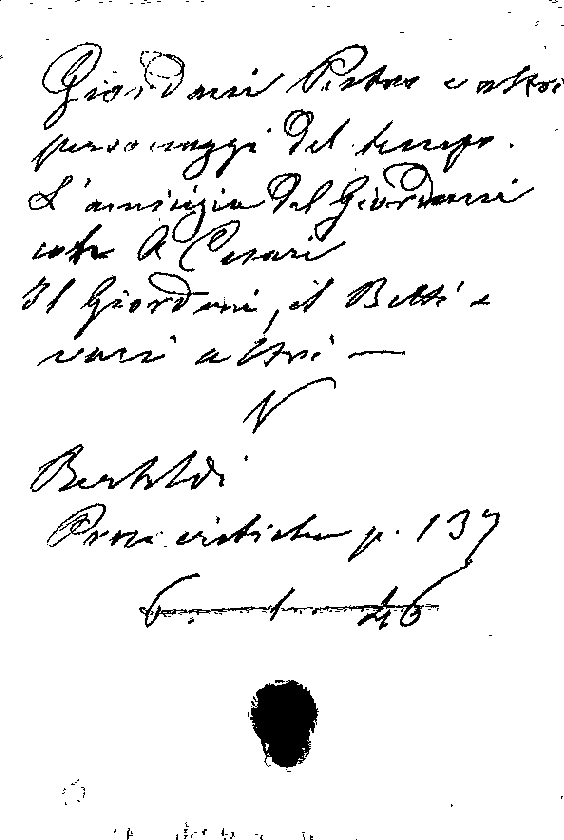 Giordani Pietro e altri
personaggi del tempo.
L'amicizia del Giordani
con A Cesari
Il Giordani, il Betti e
vari altri —
V
Bertoldi
Prose critiche p. 137
6. 1. 46